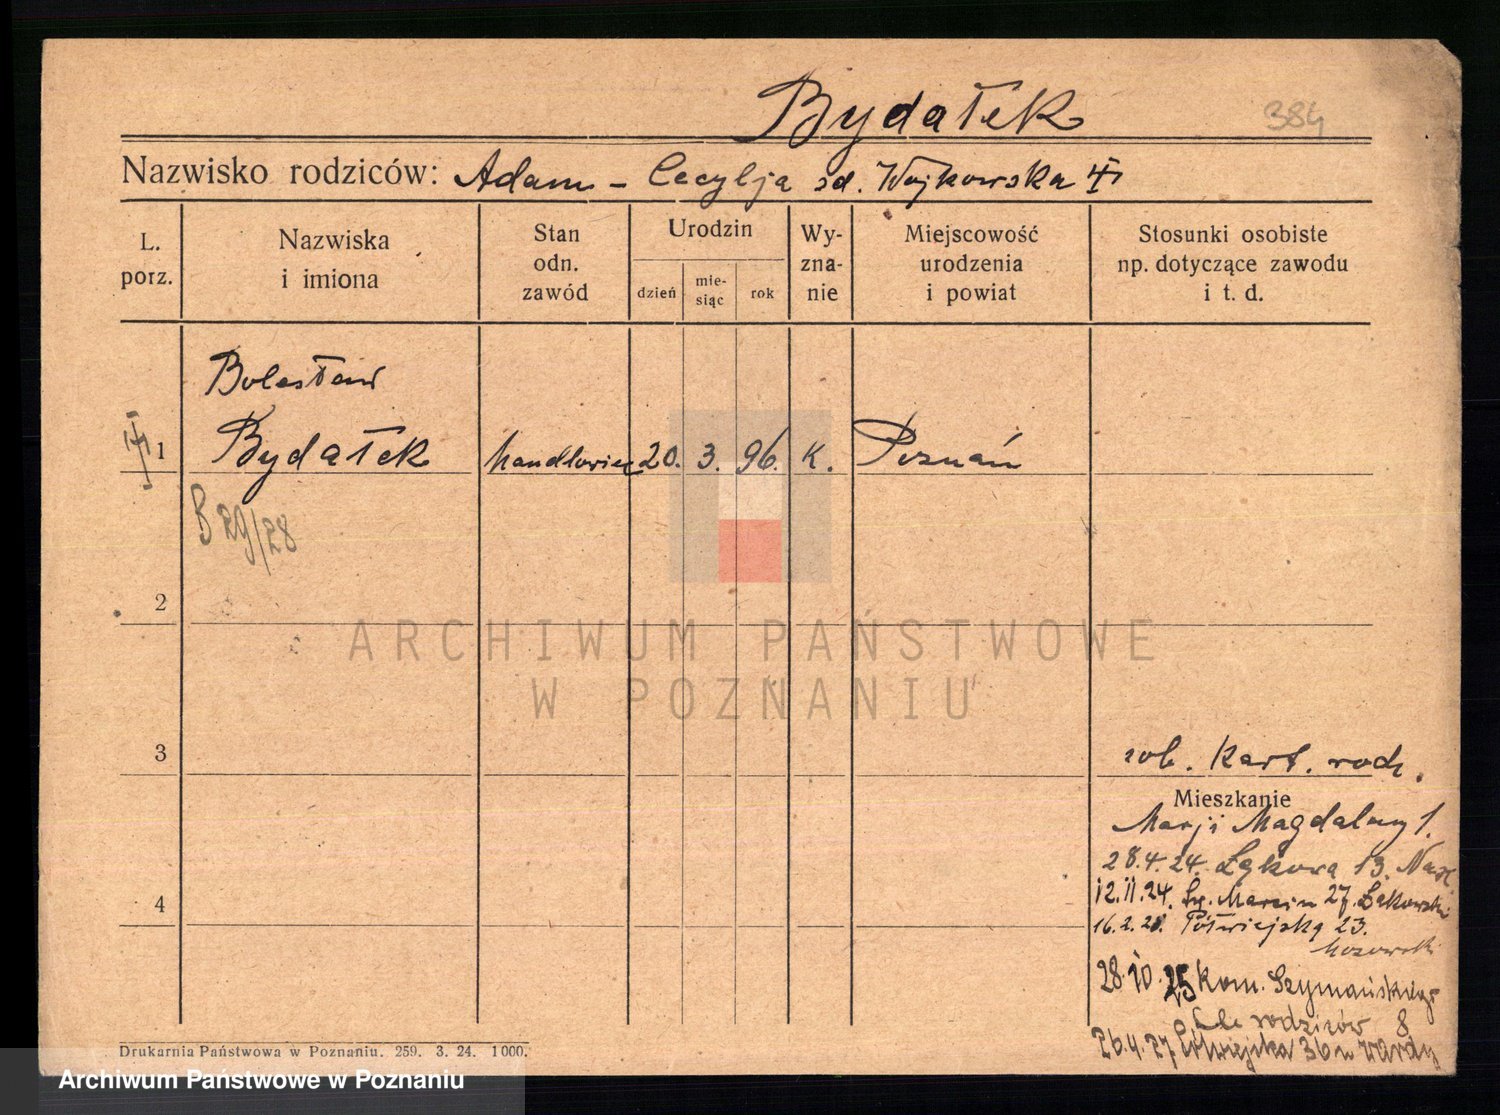 Bydałek
384
Nazwisko rodziców: Adam - Cecylja sd. Wojkowska
L. porz.
Nazwiska i imiona
Stan odn. zawód
Urodzin
dzień
mie-siąc
rok
Wy-zna-nie
Miejscowość urodzenia i powiat
Stosunki osobiste np. dotyczące zawodu i t. d.
Bolesław
1 Bydałek handlowiec 20. 3. 96. K. Poznań
B 29/28
2
ARCHIWUM PAŃSTWOWE
W POZNANIU
3
zob. Kart. rodz.
Mieszkanie
Marji Magdaleny 1.
28.4.24. Łąkowa 13.
4
12.11.24. Św. Marcin 27.
16.2.25. Półwiejska 23.
28.10.25 Kom. Szymańskiego 8
rodziców
26.4.27 Półwiejska 36
Drukarnia Państwowa w Poznaniu. 259. 3. 24. 1000.
Archiwum Państwowe w Poznaniu